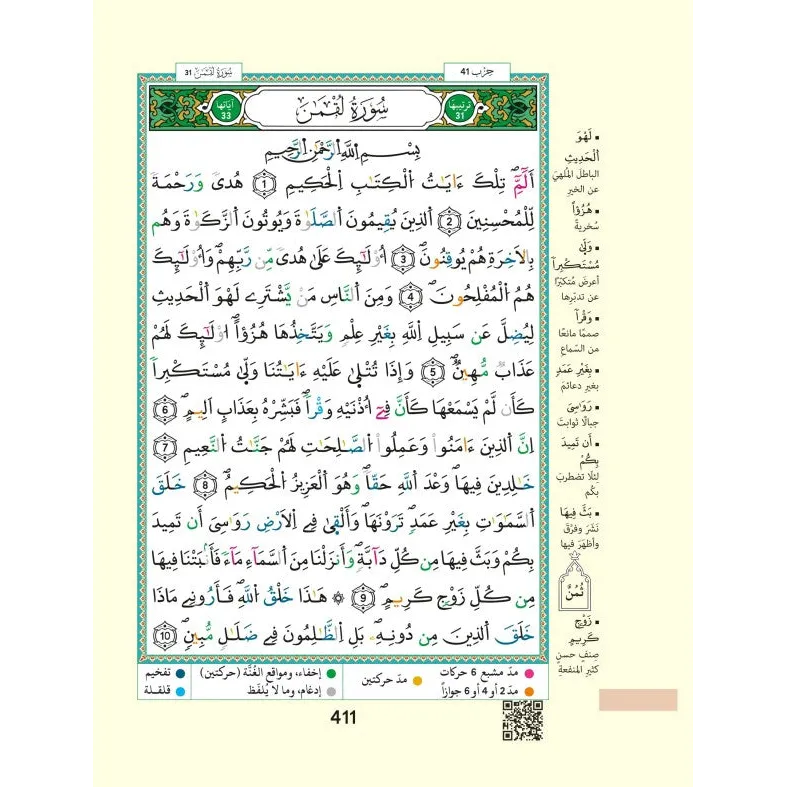 سُورَةُ لُقْمَٰن 31
حِزْب 41
آيَاتُها 33
سُورَةُ لُقْمَٰنَ
تَرتيبُها 31
بِسْمِ اِللَّهِ اِلرَّحْمَٰنِ اِلرَّحِيمِ
أَلَٓمِّٓۖ تِلْكَ ءَايَٰتُ اُلْكِتَٰبِ اِلْحَكِيمِ 1 هُدىٗ وَرَحْمَةٗ
لِّلْمُحْسِنِينَ 2 اَلذِينَ يُقِيمُونَ اَلصَّلَوٰةَ وَيُوتُونَ اَلزَّكَوٰةَ وَهُم
بِالَاخِرَةِ هُمْ يُوقِنُونَۖ 3 أُوْلَٰٓئِكَ عَلَىٰ هُدىٗ مِّن رَّبِّهِمْۖ وَأُوْلَٰٓئِكَ
هُمُ اُلْمُفْلِحُونَۖ 4 وَمِنَ اَلنَّاسِ مَنْ يَّشْتَرِے لَهْوَ اَلْحَدِيثِ
لِيُضِلَّ عَن سَبِيلِ اِللَّهِ بِغَيْرِ عِلْمٖ وَيَتَّخِذُهَا هُزُؤاًۖ اُوْلَٰٓئِكَ لَهُمْ
عَذَابٞ مُّهِينٞۖ 5 وَإِذَا تُتْلَىٰ عَلَيْهِ ءَايَٰتُنَا وَلَّىٰ مُسْتَكْبِراٗ
كَأَن لَّمْ يَسْمَعْهَا كَأَنَّ فِےٓ أُذْنَيْهِ وَقْراٗۖ فَبَشِّرْهُ بِعَذَابٍ اَلِيمٍۖ 6
اِنَّ اَلذِينَ ءَامَنُواْ وَعَمِلُواْ اُلصَّٰلِحَٰتِ لَهُمْ جَنَّٰتُ اُلنَّعِيمِ 7
خَٰلِدِينَ فِيهَا وَعْدَ اَللَّهِ حَقّاٗۖ وَهُوَ اَلْعَزِيزُ اُلْحَكِيمُۖ 8 خَلَقَ
اَلسَّمَٰوَٰتِ بِغَيْرِ عَمَدٖ تَرَوْنَهَاۖ وَأَلْقَىٰ فِے اِلَارْضِ رَوَٰسِيَ أَن تَمِيدَ
بِكُمْ وَبَثَّ فِيهَا مِن كُلِّ دَآبَّةٖۖ وَأَنزَلْنَا مِنَ اَلسَّمَآءِ مَآءٗ فَأَنۢبَتْنَا فِيهَا
مِن كُلِّ زَوْجٖ كَرِيمٍۖ 9 ۞ هَٰذَا خَلْقُ اُللَّهِۖ فَأَرُونِے مَاذَا
خَلَقَ اَلذِينَ مِن دُونِهِۦۖ بَلِ اِلظَّٰلِمُونَ فِے ضَلَٰلٖ مُّبِينٖۖ 10
▪ لَهْوَ
اَلْحَدِيثِ
الباطلَ المُلهيَ
عن الخيرِ
▪ هُزُؤاً
سُخريةً
▪ وَلَّىٰ
مُسْتَكْبِراٗ
أعرضَ متكبّرًا
عن تدبّرها
▪ وَقْراٗ
صممًا مانعًا
من السّماعِ
▪ بِغَيْرِ عَمَدٖ
بغيرِ دعائمَ
▪ رَوَٰسِيَ
جبالًا ثوابتَ
▪ أَن تَمِيدَ
بِكُمْ
لئلّا تضطربَ
بكُم
▪ بَثَّ فِيهَا
نَشَرَ وفرَّقَ
وأظهَرَ فيها
ثُمُن
▪ زَوْجٖ
كَرِيمٍ
صِنفٍ حسنٍ
كثيرِ المنفعةِ
مدّ مشبع 6 حركات
مدّ حركتين
إخفاء، ومواقع الغُنَّة (حركتين)
تفخيم
مدّ 2 أو 4 أو 6 جوازاً
إدغام، وما لا يُلفَظ
قلقلة
411